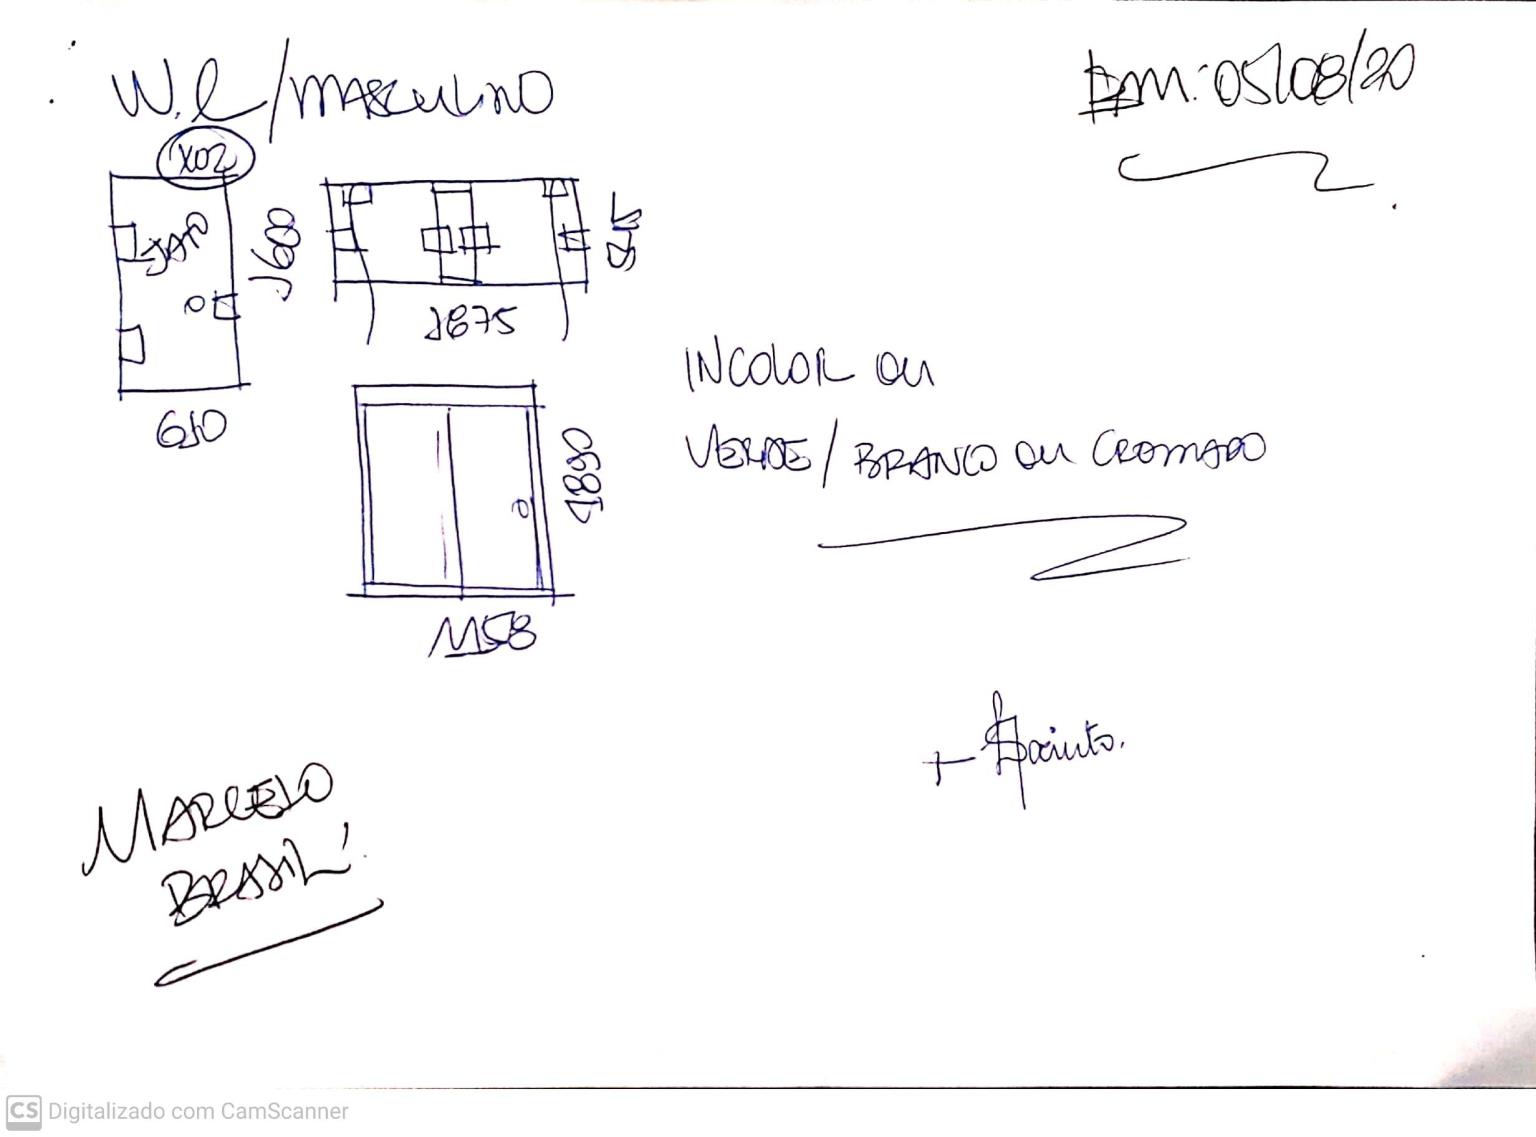 W.C/MASCULINO
EM: 05/08/20
X02
JATO
1600
610
515
1875
INCOLOR OU
VERDE/BRANCO OU CROMADO
1890
1158
MARCELO
BRASIL!
CS Digitalizado com CamScanner